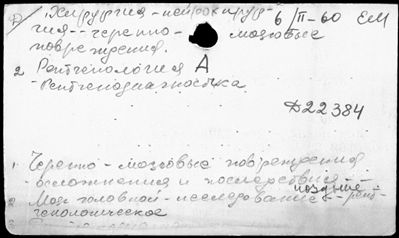 Хирургия - нейрохирур- 6/II-60 ЕМ
гия - черепно- мозговые
повреждения.
2 Рентгенология А
- Рентгенодиагностика
Д22384
1. Черепно - мозговые повреждения -
- осложнения и последствия - поздние
2 Мозг головной - исследование - рент-
генологическое